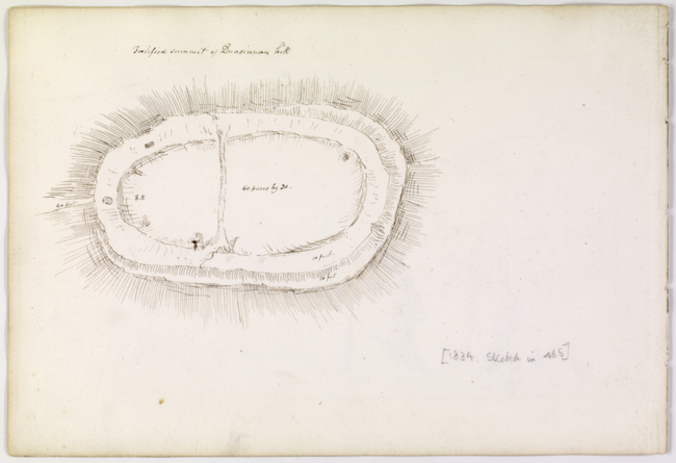 Fortified summit of Dunsinnan hill
60 paces by 30 -
S.E
10 feet
10 feet
[1834. Sketch in 465]